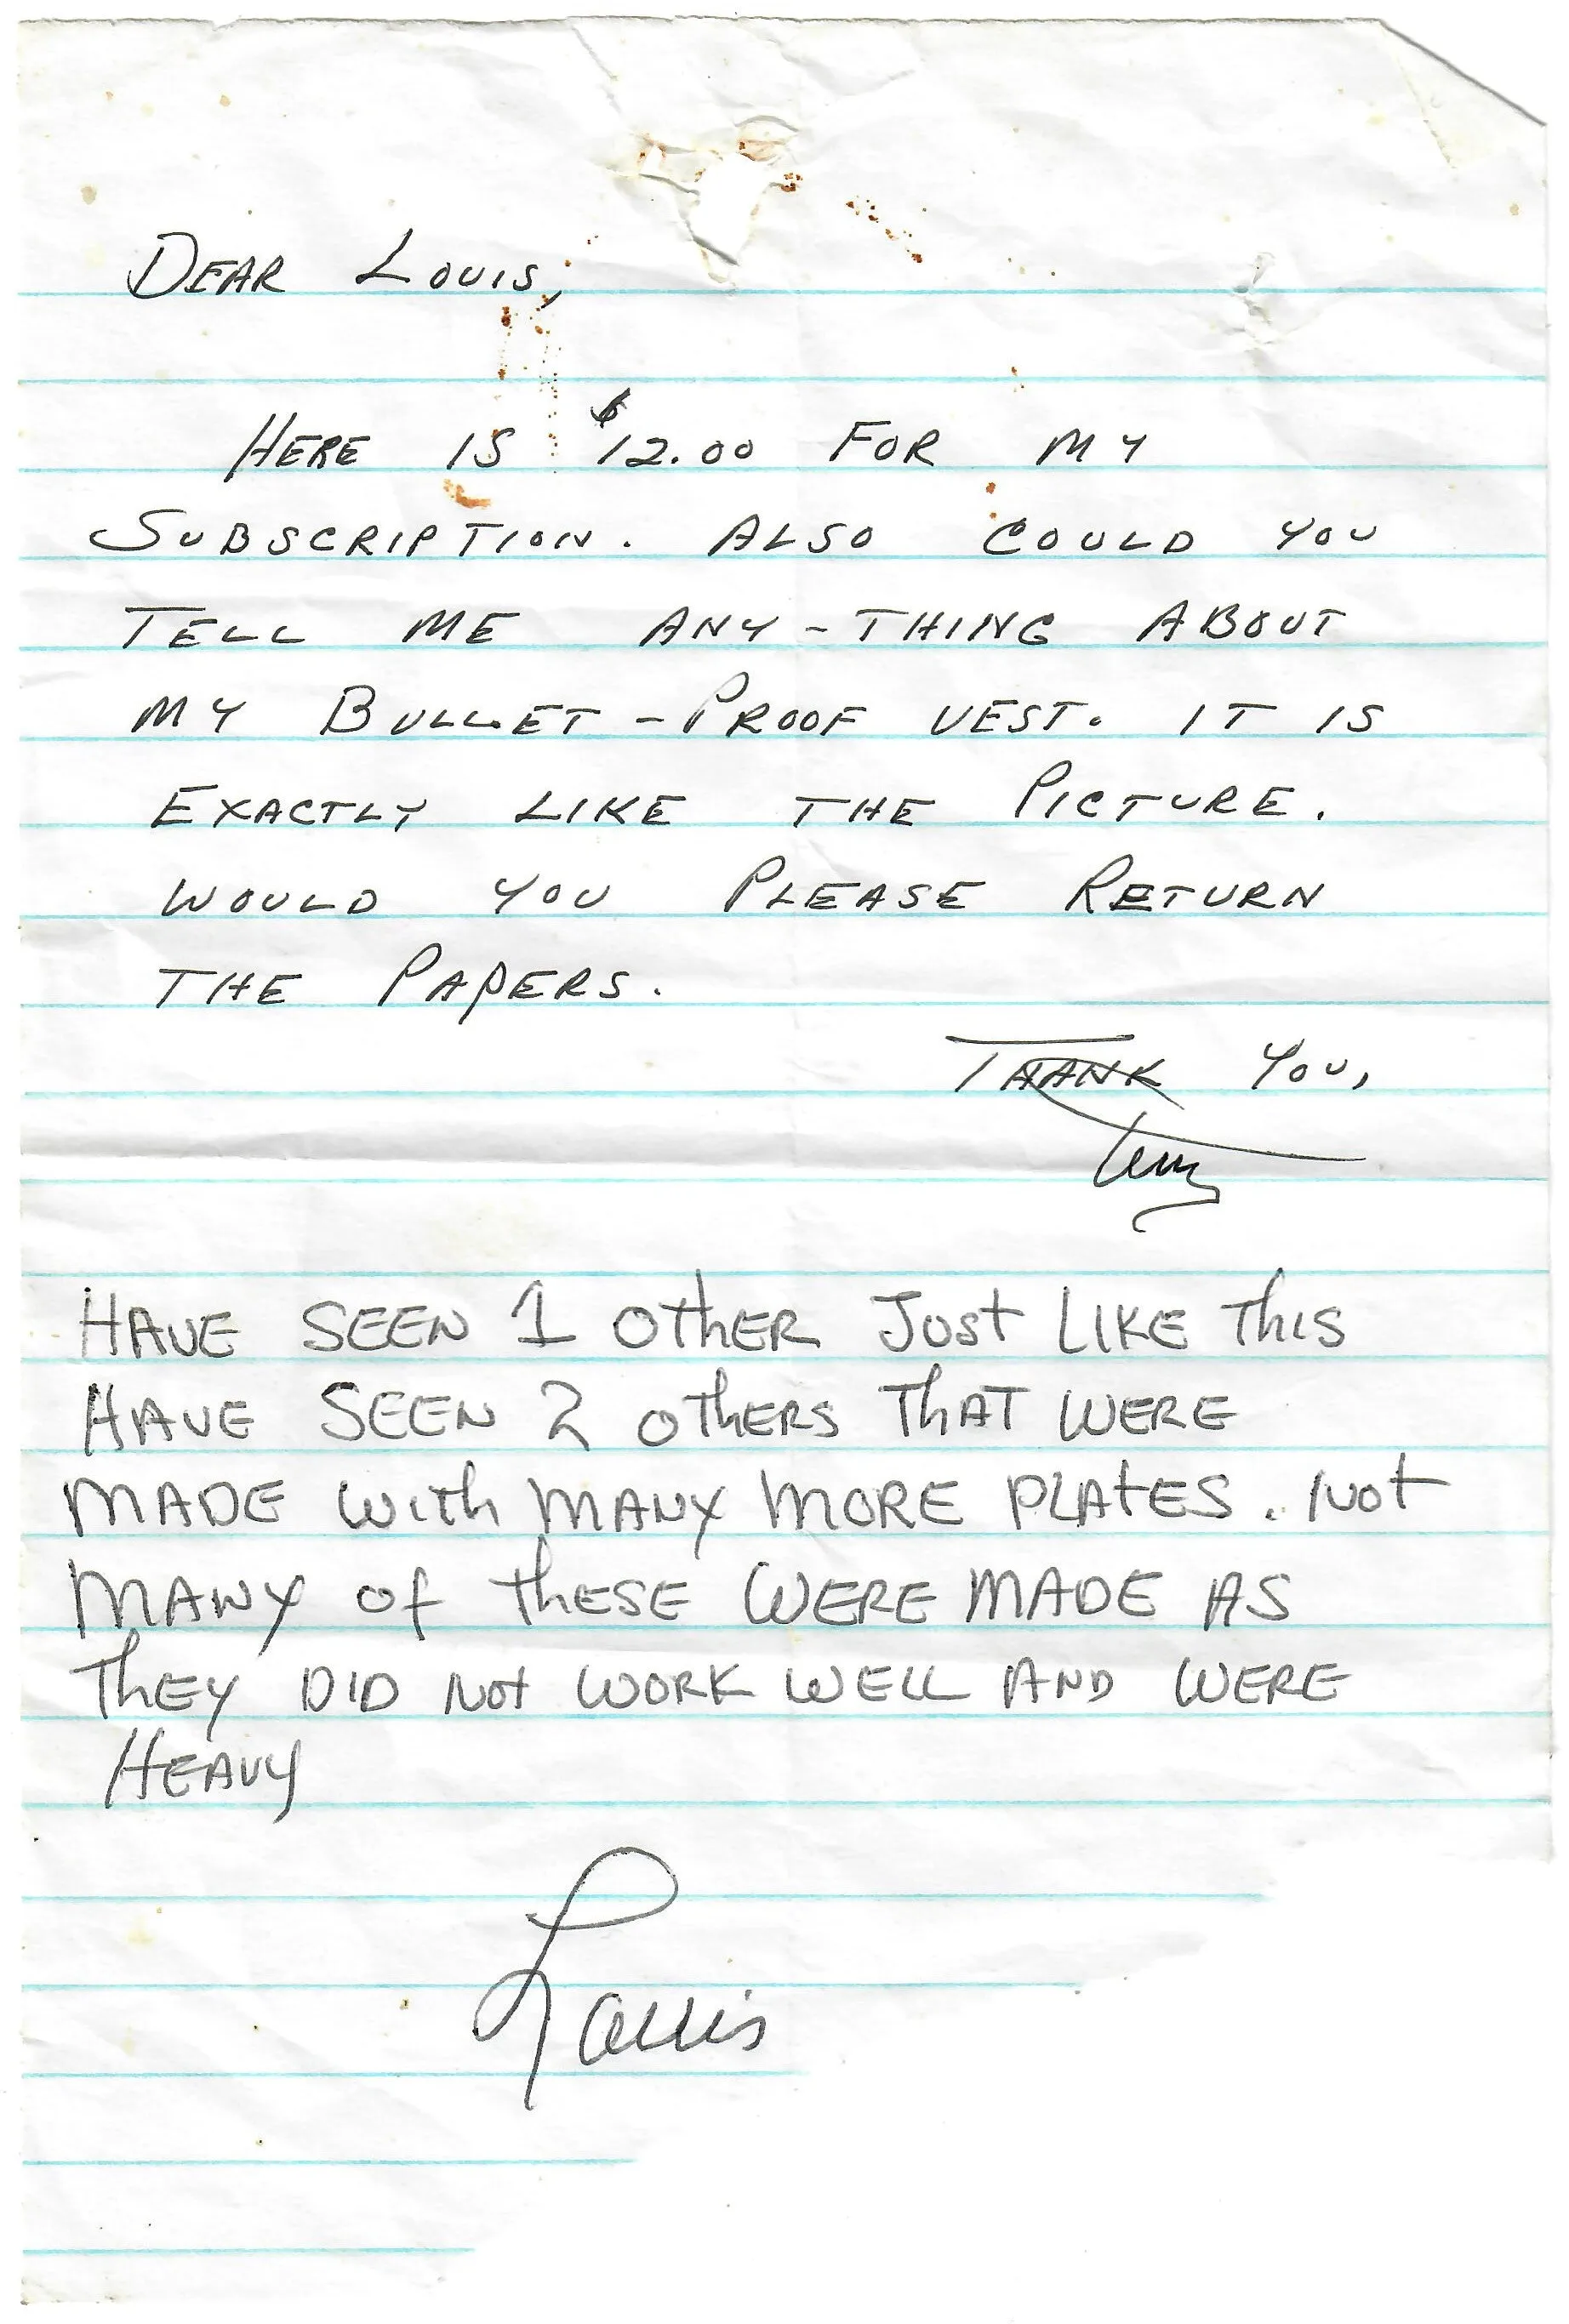 DEAR LOUIS,
HERE IS $12.00 FOR MY
SUBSCRIPTION. ALSO COULD YOU
TELL ME ANY-THING ABOUT
MY BULLET-PROOF VEST. IT IS
EXACTLY LIKE THE PICTURE.
WOULD YOU PLEASE RETURN
THE PAPERS.
THANK YOU,
HAVE SEEN 1 OTHER JUST LIKE THIS
HAVE SEEN 2 OTHERS THAT WERE
MADE WITH MANY MORE PLATES. NOT
MANY OF THESE WERE MADE AS
THEY DID NOT WORK WELL AND WERE
HEAVY
Louis